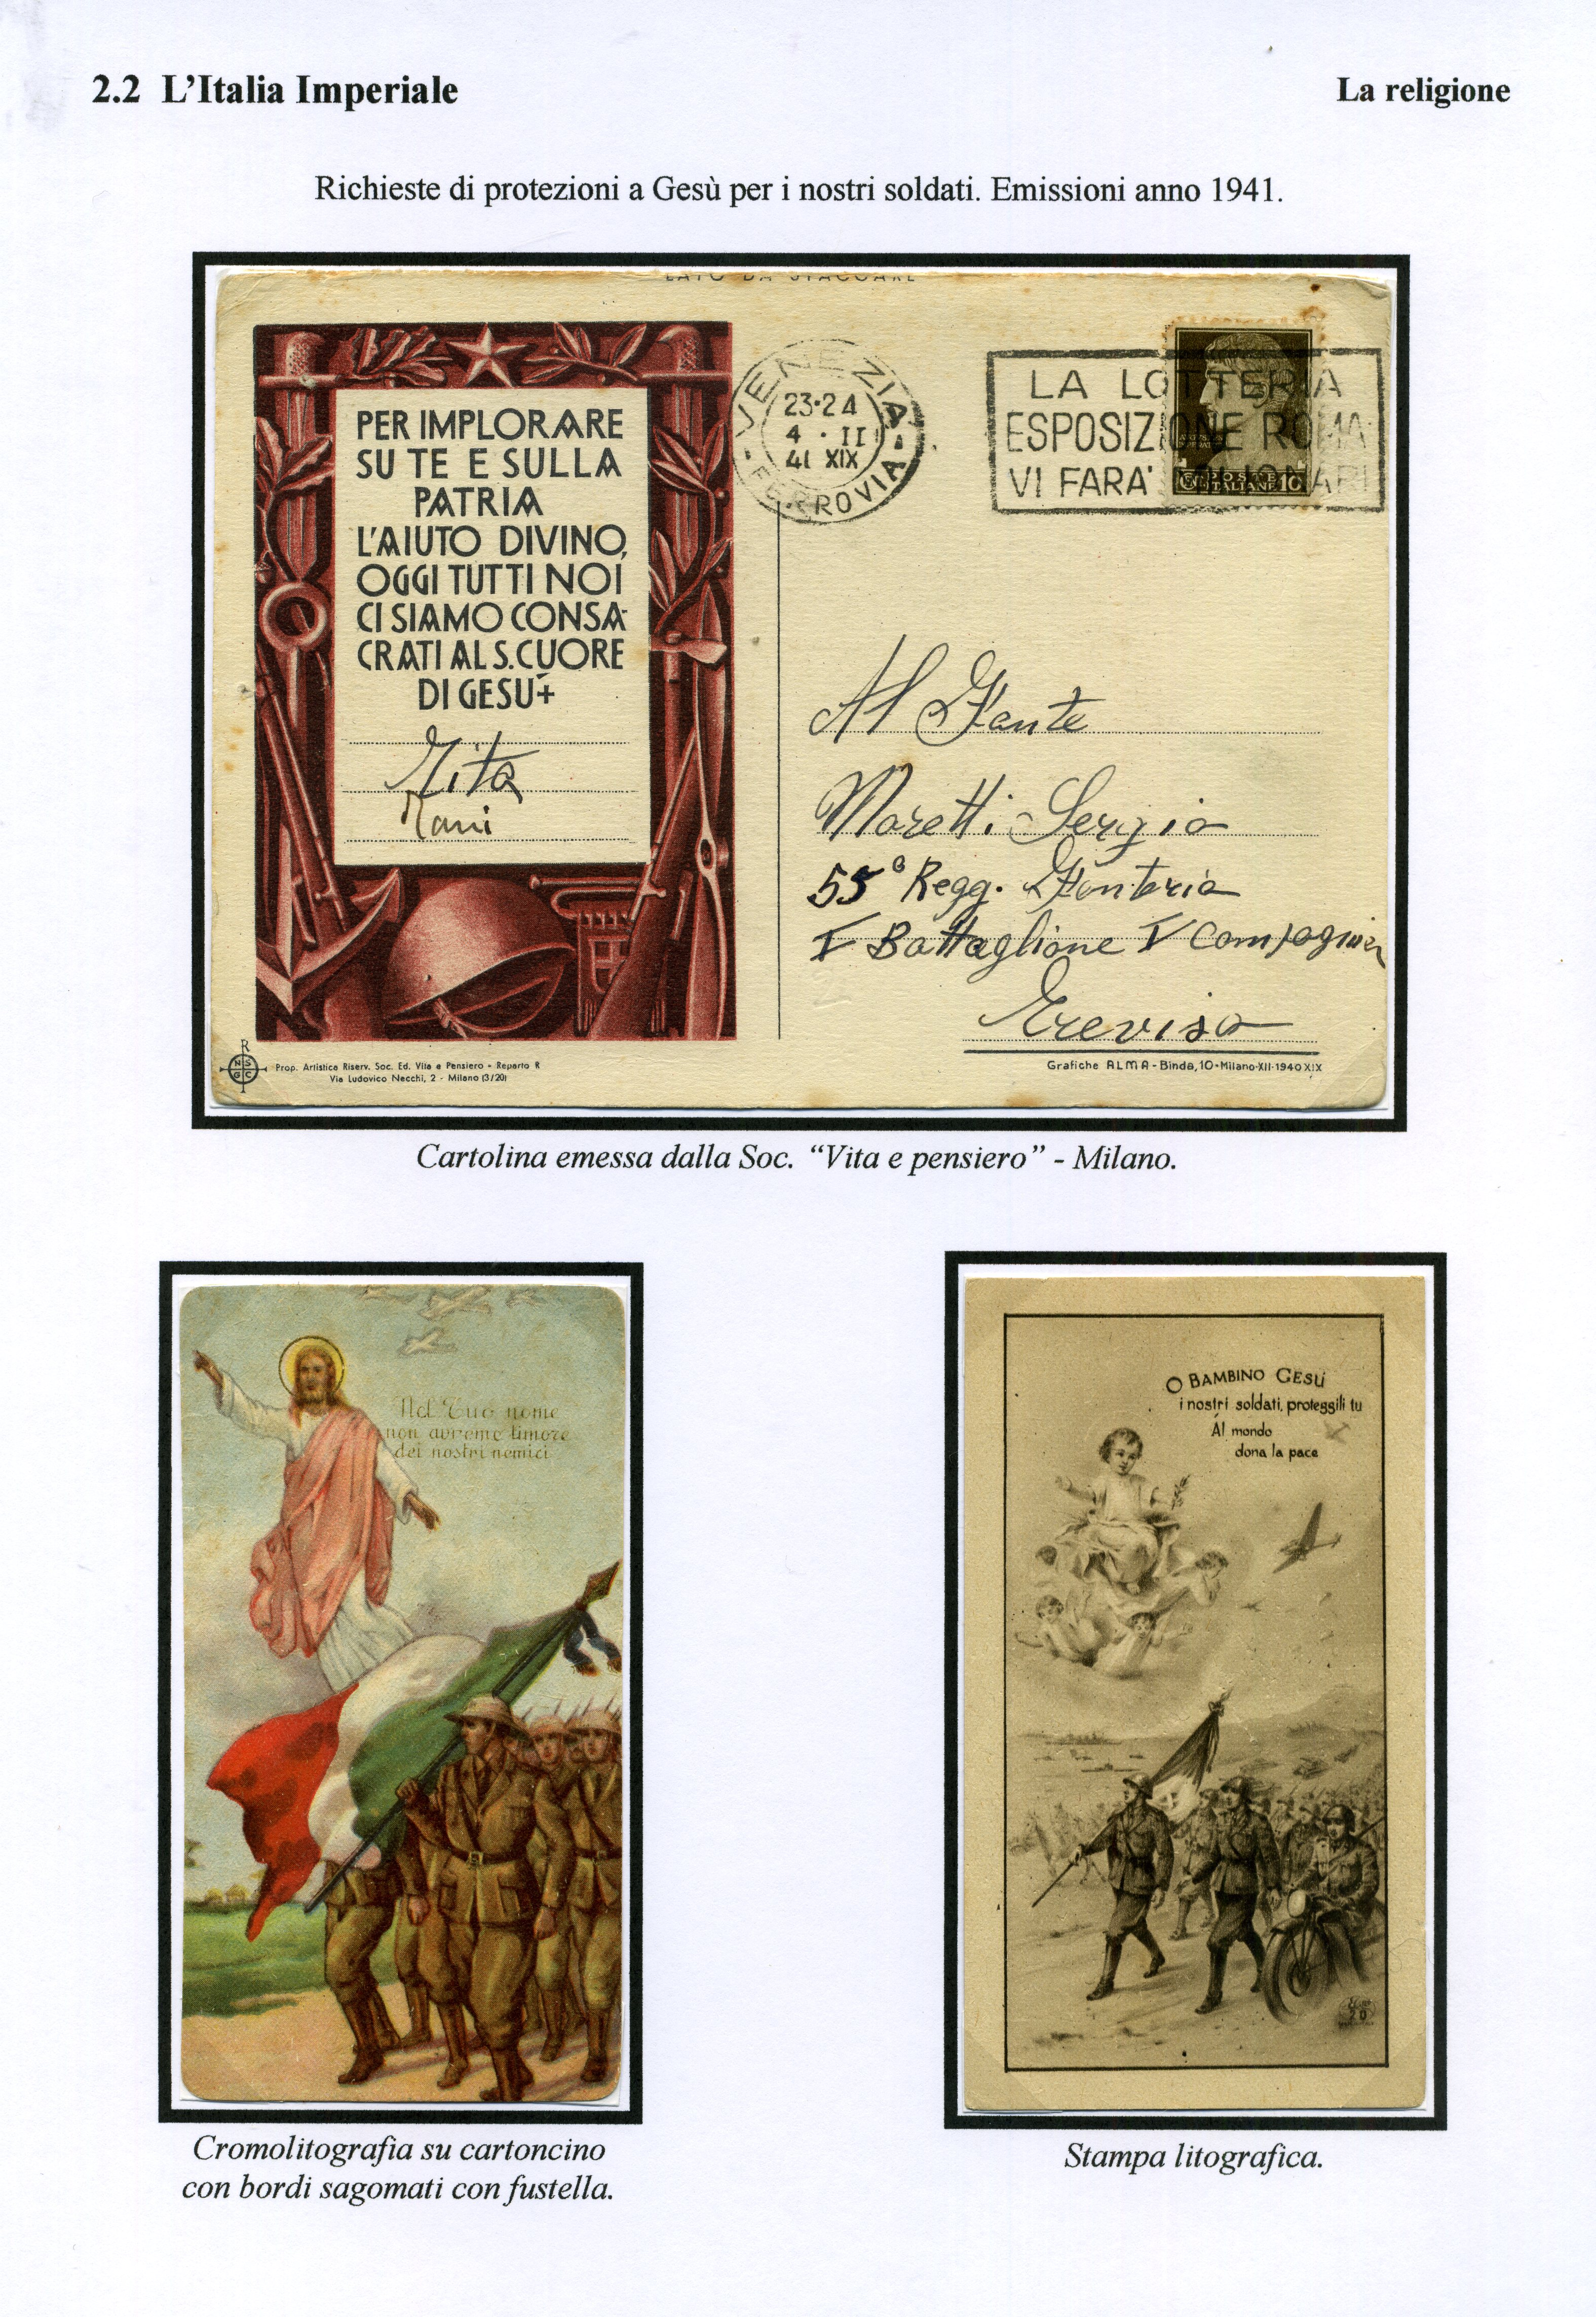 2.2 L'Italia Imperiale
La religione
Richieste di protezioni a Gesù per i nostri soldati. Emissioni anno 1941.
LATO DA STACCARE
PER IMPLORARE
SU TE E SULLA
PATRIA
L'AIUTO DIVINO,
OGGI TUTTI NOI
CI SIAMO CONSA-
CRATI AL S. CUORE
DI GESÚ+
Rita
VENEZIA
23·24
4 · II
41 XIX
FERROVIA
LA LOTTERIA
ESPOSIZIONE ROMA
VI FARA' MILIONARI
POSTE
ITALIANE 10
Al Fante
Moretti Sergio
55° Regg. Fanteria
I Battaglione I Compagnia
Treviso
R
N S
G C
Prop. Artistica Riserv. Soc. Ed. Vita e Pensiero - Reparto R
Via Ludovico Necchi, 2 - Milano (3/20)
Grafiche ALMA - Binda, 10 - Milano-XII-1940 XIX
Cartolina emessa dalla Soc. “Vita e pensiero” - Milano.
Nel Tuo nome
non avremo timore
dei nostri nemici
O BAMBINO GESÙ
i nostri soldati, proteggili tu
Al mondo
dona la pace
20
Cromolitografia su cartoncino
con bordi sagomati con fustella.
Stampa litografica.